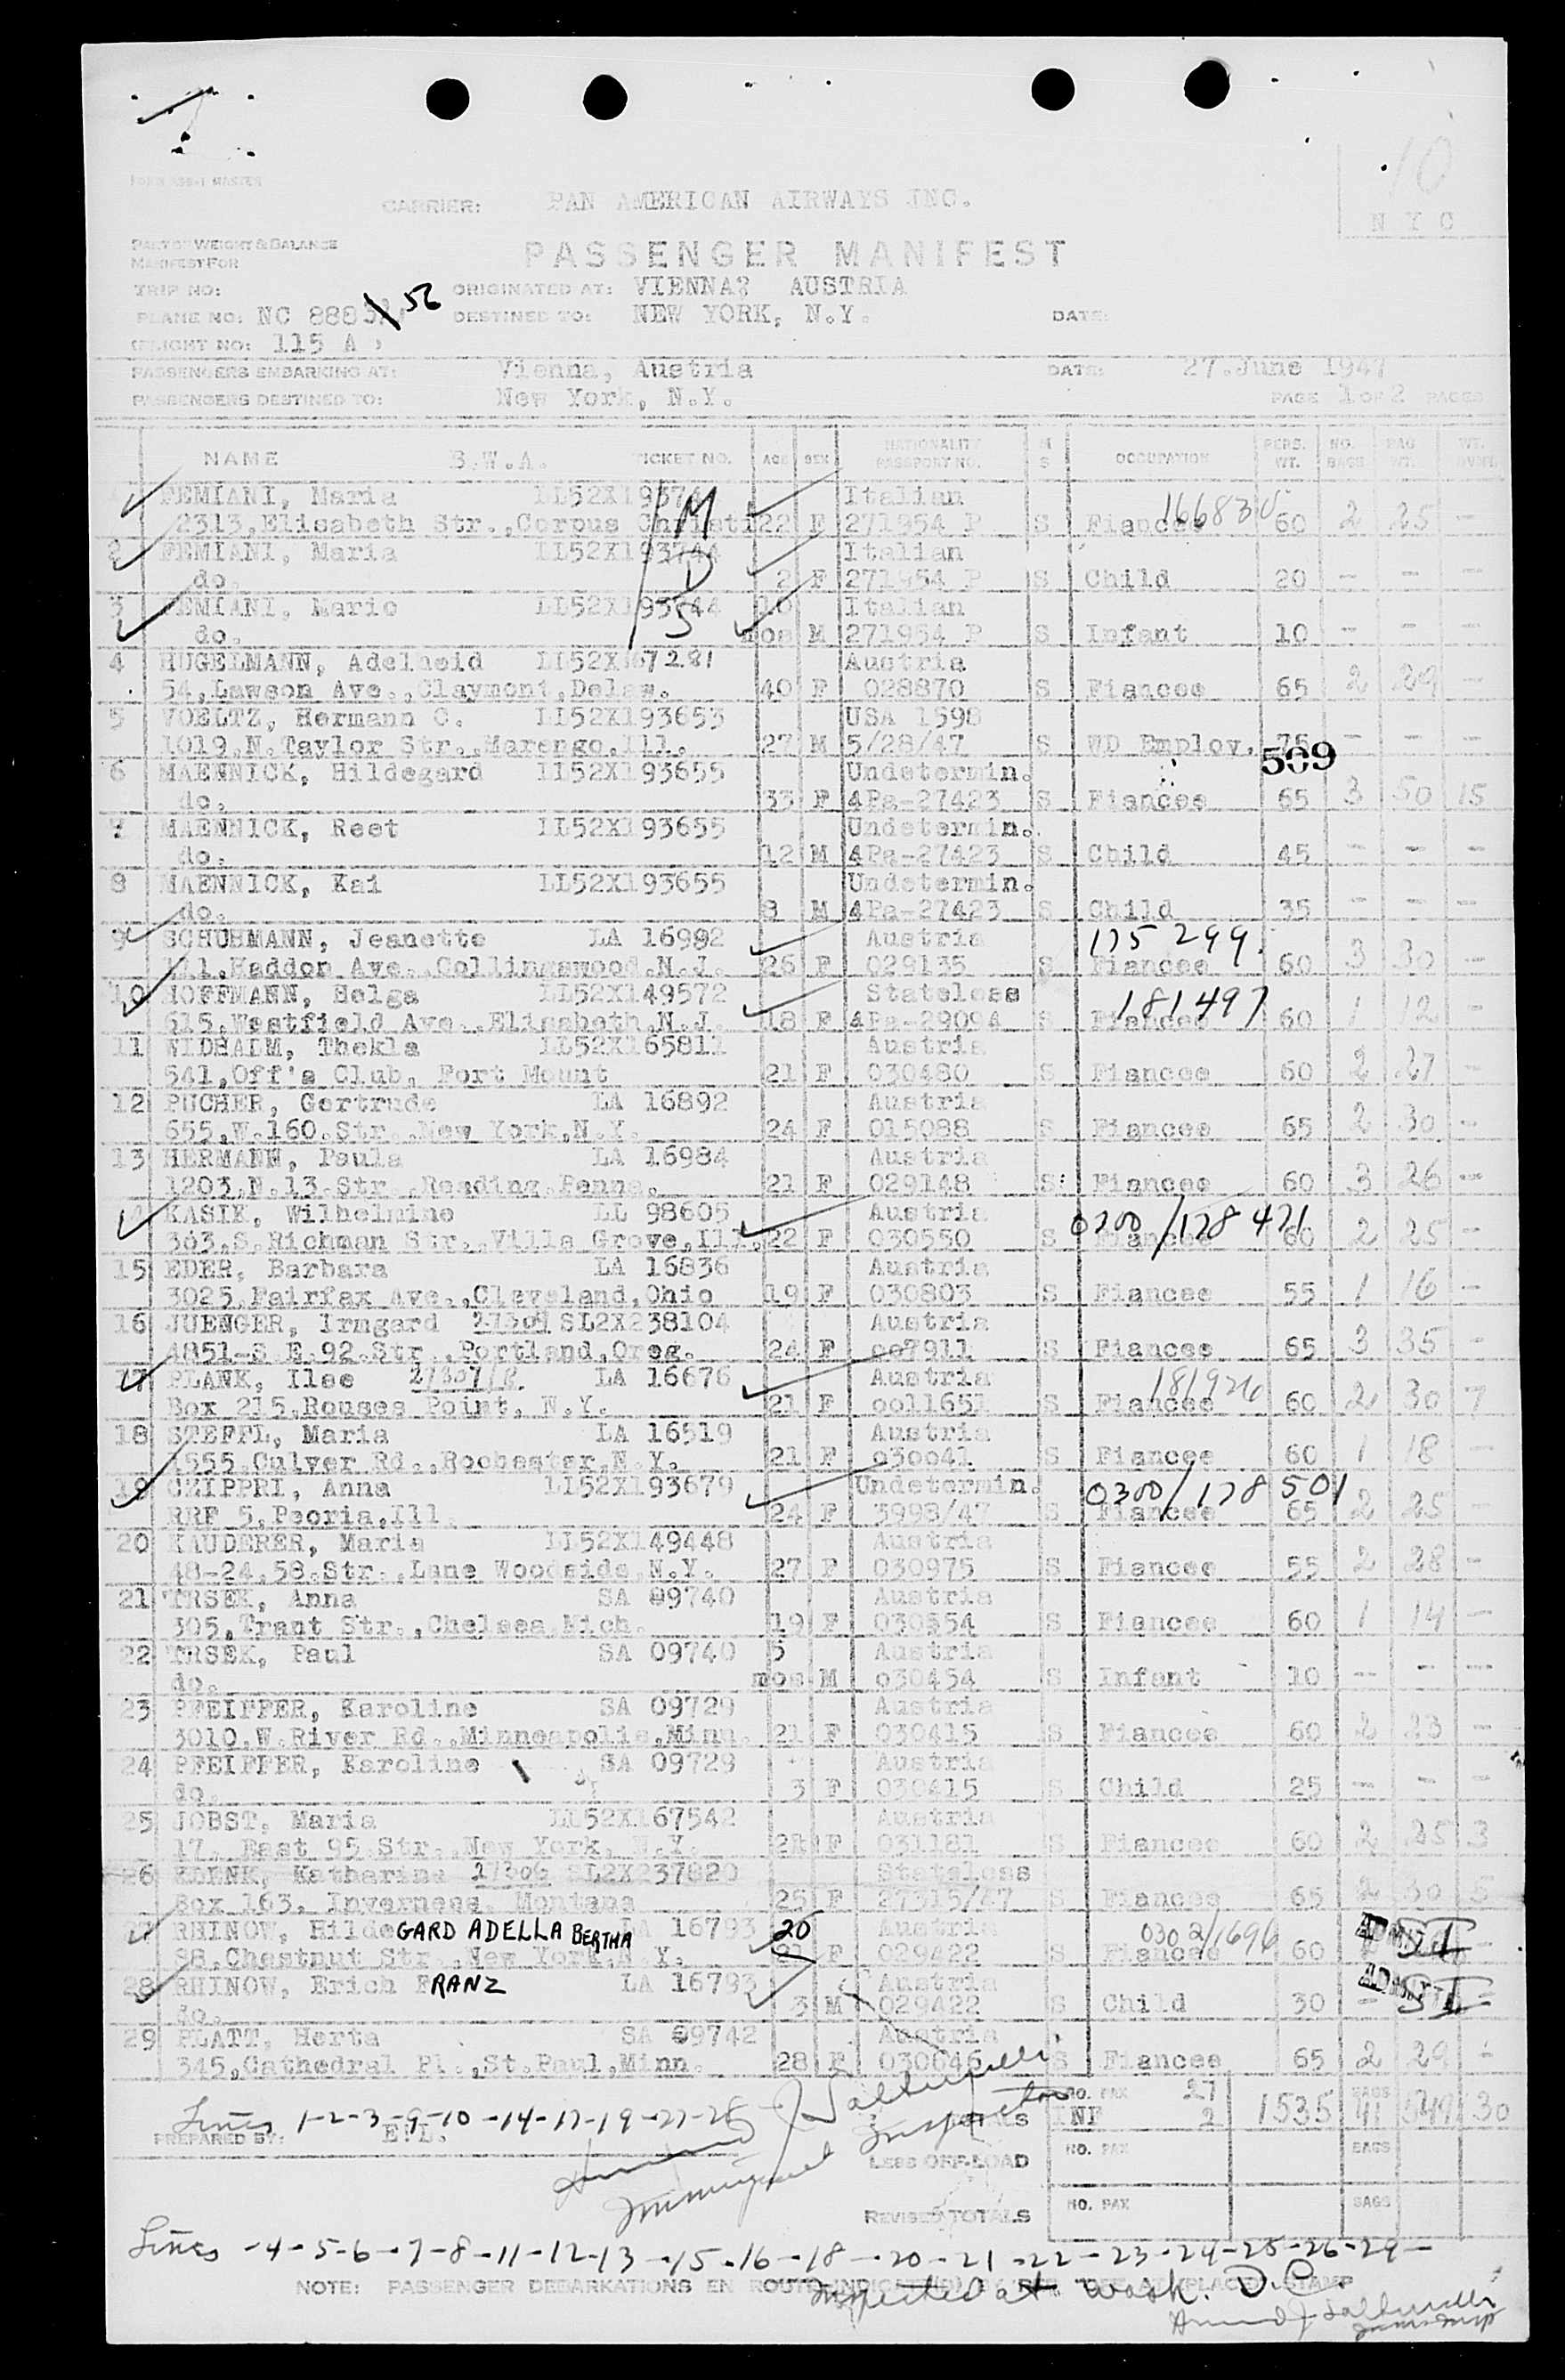 FORM 1994-1 MASTER
10
CARRIER: PAN AMERICAN AIRWAYS INC.
N Y C
PART OF WEIGHT & BALANCE
MANIFEST FOR
PASSENGER MANIFEST
TRIP NO: ORIGINATED AT: VIENNA? AUSTRIA
PLANE NO: NC 888 56 DESTINED TO: NEW YORK, N.Y. DATE:
FLIGHT NO: 115 A
PASSENGERS EMBARKING AT: Vienna, Austria DATE: 27.June 1947
PASSENGERS DESTINED TO: New York, N.Y. PAGE 1 OF 2 PAGES
NAME B.W.A. TICKET NO. AGE SEX NATIONALITY PASSPORT NO. M S OCCUPATION PERS. WT. NO. BAGS BAG WT. WT. OVWT.
FEMIANI, Maria LL52X19374 M Italian 166830
2313,Elisabeth Str.,Corpus Christi 22 F 271954 P S Fiancee 60 2 25 -
2 FEMIANI, Maria LL52X193744 D Italian
do. 2 F 271954 P S Child 20 - - -
3 FEMIANI, Mario LL52X193744 S 10 Italian
do. mos M 271954 P S Infant 10 - - -
4 HUGELMANN, Adelheid LL52X167281 Austria
54,Lawson Ave.,Claymont,Delaw. 40 F 028870 S Fiancee 65 2 29 -
5 VOELTZ, Hermann C. LL52X193653 USA 1598
1019,N.Taylor Str.,Marengo,Ill. 27 M 5/28/47 S WD Employ. 75 - - -
509
6 MAENNICK, Hildegard LL52X193655 Undetermin.
do. 33 F 4Pa-27423 S Fiancee 65 3 50 15
7 MAENNICK, Reet LL52X193655 Undetermin.
do. 12 M 4Pa-27423 S Child 45 - - -
8 MAENNICK, Kai LL52X193655 Undetermin.
do. 8 M 4Pa-27423 S Child 35 - - -
9 SCHUHMANN, Jeanette LA 16992 Austria 175299
111,Haddon Ave.,Collingswood,N.J. 26 F 029135 S Fiancee 60 3 30 -
10 HOFFMANN, Helga LL52X149572 Stateless 181497
615,Westfield Ave.,Elisabeth,N.J. 18 F 4Pa-29094 S Fiancee 60 1 12 -
11 WIDHALM, Thekla LL52X165811 Austria
541,Off's Club, Fort Mount 21 F 030480 S Fiancee 60 2 27 -
12 PUCHER, Gertrude LA 16892 Austria
655,W.160.Str.,New York,N.Y. 24 F 015088 S Fiancee 65 2 30 -
13 HERMANN, Paula LA 16984 Austria
1203,N.13.Str.,Reading,Penna. 21 F 029148 S Fiancee 60 3 26 -
KASIK, Wilhelmine LL 98605 Austria 0300/178471
303,S.Richman Str.,Villa Grove,Ill. 22 F 030550 S Fiancee 60 2 25 -
15 EDER, Barbara LA 16836 Austria
3025,Fairfax Ave.,Cleveland,Ohio 19 F 030803 S Fiancee 55 1 16 -
16 JUENGER, Irmgard 27309 SL2X238104 Austria
4851-S.E.92.Str.,Portland,Oreg. 24 F oo7911 S Fiancee 65 3 35 -
17 PLANK, Ilse LA 16676 Austria 181926
Box 215,Rouses Point, N.Y. 21 F oo11651 S Fiancee 60 2 30 7
18 STEFFL, Maria LA 16519 Austria
1555,Culver Rd.,Rochester,N.Y. 21 F o30o41 S Fiancee 60 1 18 -
19 CZIPPRI, Anna LL52X193679 Undetermin. 0300/178501
RRF 5,Peoria,Ill. 24 F 3993/47 S Fiancee 65 2 25 -
20 KAUDERER, Maria LL52X149448 Austria
48-24,58.Str.,Lane Woodside,N.Y. 27 F 030975 S Fiancee 55 2 28 -
21 TRSEK, Anna SA 09740 Austria
305,Trant Str.,Chelsea Mich. 19 F 030554 S Fiancee 60 1 14 -
22 TRSEK, Paul SA 09740 5 Austria
do. mos M o30454 S Infant 10 - - -
23 PFEIFFER, Karoline SA 09729 Austria
3010,W.River Rd.,Minneapolis,Minn. 21 F 030415 S Fiancee 60 2 23 -
24 PFEIFFER, Karoline SA 09729 Austria
do. 3 F 030415 S Child 25 - - -
25 JOBST, Maria LL52X167542 Austria
17, East 95 Str.,New York, N.Y. 21 F 031181 S Fiancee 60 2 25 3
26 Katharina 27306 SL2X237820 Stateless
Box 163, Inverness, Montana 25 F 27515/47 S Fiancee 65 2 30 5
RHINOW, HildeGARD ADELLA BERTHA LA 16793 20 Austria 0302/1696
38,Chestnut Str.,New York,N.Y. 21 F 029422 S Fiancee 60 -
28 RHINOW, Erich FRANZ LA 16793 Austria
do. 3 M 029422 S Child 30 -
29 PLATT, Herta SA 09742 Austria
345,Cathedral Pl.,St.Paul,Minn. 28 F 030646 S Fiancee 65 2 29 -
Lines 1-2-3-9-10-14-17-19-27-28
NO. PAX 27 1535 BAGS 41 549 30
INF 2
PREPARED BY: E.L.
Immigrant Inspector
LESS OFF-LOAD NO. PAX BAGS
REVISED TOTALS NO. PAX BAGS
Lines -4-5-6-7-8-11-12-13-15-16-18-20-21-22-23-24-25-26-29-
NOTE: PASSENGER DEBARKATIONS EN ROUTE INDICATED BY
Inspected at Wash. D.C.